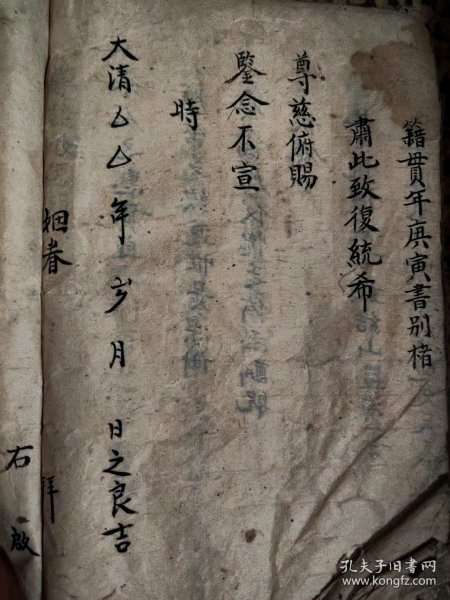 籍貫年庚寅書別楮
肅此致復統希
尊慈俯賜
鍳念不宣
時
大清厶厶年 岁月 日之良吉
姻眷 拜
右啟
孔夫子旧书网
www.kongfz.com